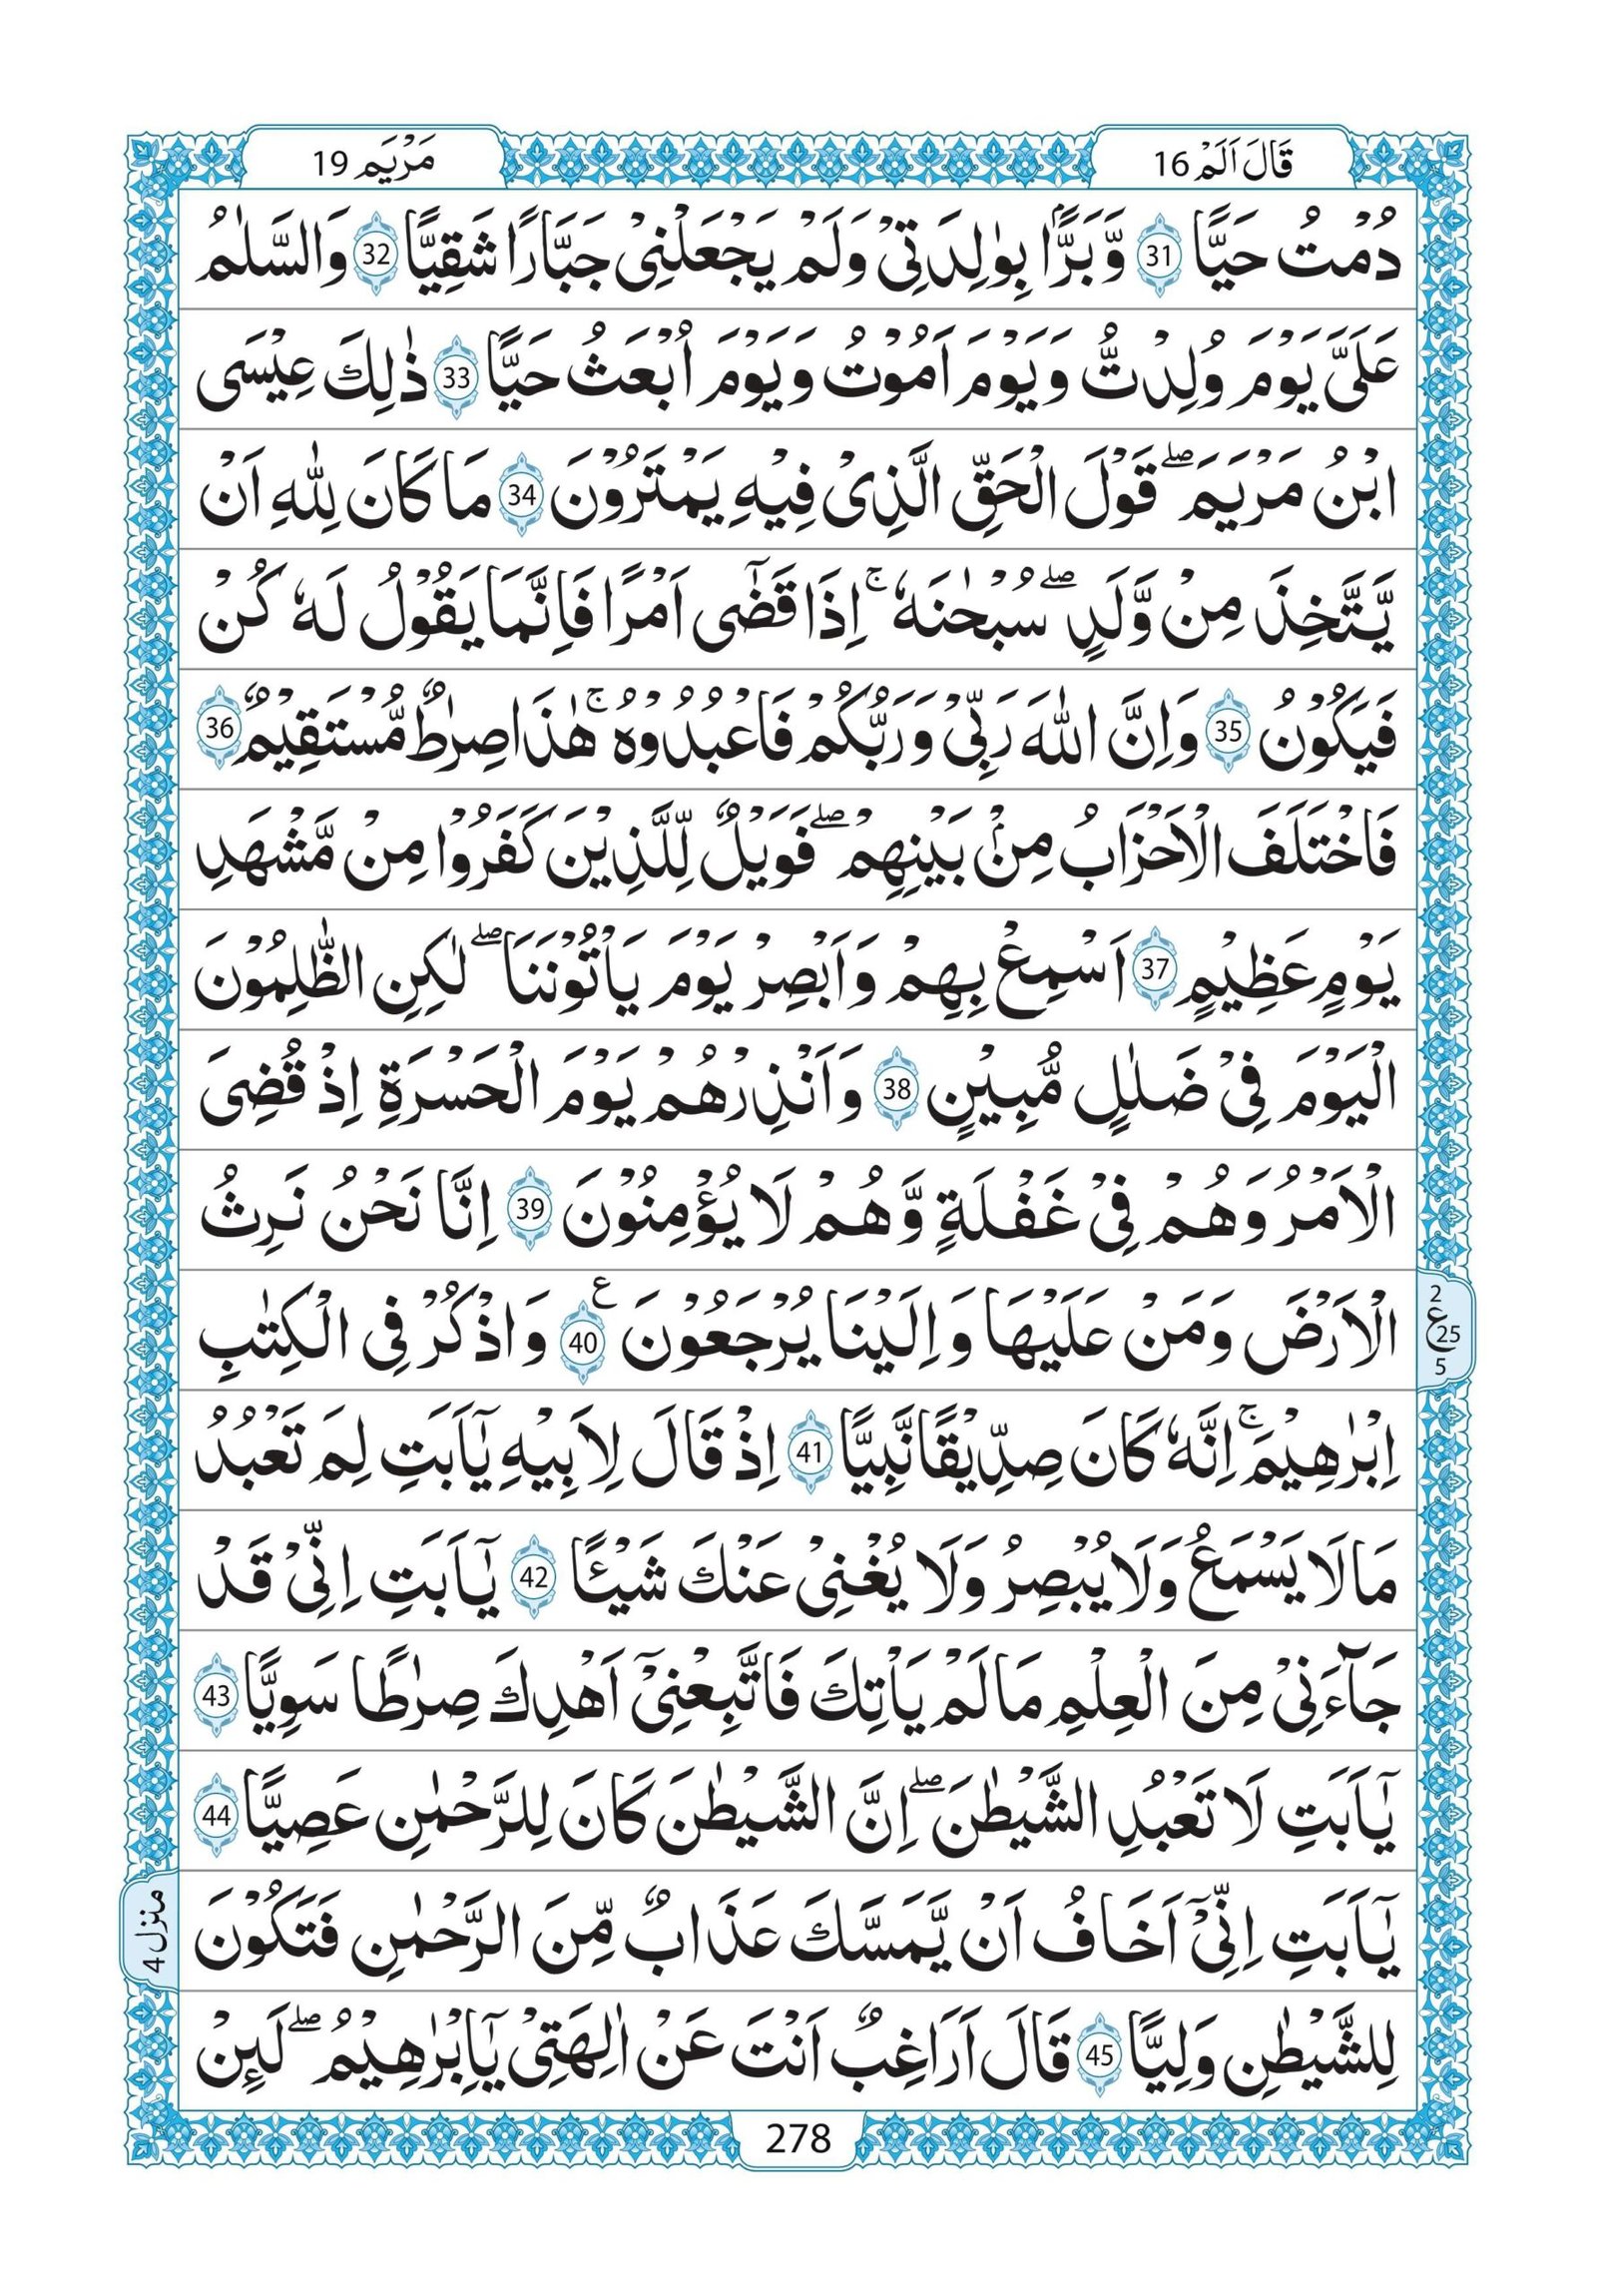 قَالَ اَلَمْ 16
مَرْيَم 19
دُمْتُ حَيًّا 31 وَّبَرًّۢا بِوٰلِدَتِىْ وَلَمْ يَجْعَلْنِىْ جَبَّارًا شَقِيًّا 32 وَالسَّلٰمُ
عَلَىَّ يَوْمَ وُلِدْتُّ وَيَوْمَ اَمُوْتُ وَيَوْمَ اُبْعَثُ حَيًّا 33 ذٰلِكَ عِيْسَى
ابْنُ مَرْيَمَ ۖ قَوْلَ الْحَقِّ الَّذِىْ فِيْهِ يَمْتَرُوْنَ 34 مَا كَانَ لِلّٰهِ اَنْ
يَّتَّخِذَ مِنْ وَّلَدٍ ۖ سُبْحٰنَهٗ ۚ اِذَا قَضٰٓى اَمْرًا فَاِنَّمَا يَقُوْلُ لَهٗ كُنْ
فَيَكُوْنُ 35 وَاِنَّ اللّٰهَ رَبِّىْ وَرَبُّكُمْ فَاعْبُدُوْهُ ۚ هٰذَا صِرٰطٌ مُّسْتَقِيْمٌ 36
فَاخْتَلَفَ الْاَحْزَابُ مِنْۢ بَيْنِهِمْ ۖ فَوَيْلٌ لِّلَّذِيْنَ كَفَرُوْا مِنْ مَّشْهَدِ
يَوْمٍ عَظِيْمٍ 37 اَسْمِعْ بِهِمْ وَاَبْصِرْ يَوْمَ يَاْتُوْنَنَا ۖ لٰكِنِ الظّٰلِمُوْنَ
الْيَوْمَ فِىْ ضَلٰلٍ مُّبِيْنٍ 38 وَاَنْذِرْهُمْ يَوْمَ الْحَسْرَةِ اِذْ قُضِىَ
الْاَمْرُ وَهُمْ فِىْ غَفْلَةٍ وَّهُمْ لَا يُؤْمِنُوْنَ 39 اِنَّا نَحْنُ نَرِثُ
الْاَرْضَ وَمَنْ عَلَيْهَا وَاِلَيْنَا يُرْجَعُوْنَ ع 40 وَاذْكُرْ فِى الْكِتٰبِ
2 ع 25 5
اِبْرٰهِيْمَ ۚ اِنَّهٗ كَانَ صِدِّيْقًا نَّبِيًّا 41 اِذْ قَالَ لِاَبِيْهِ يٰٓاَبَتِ لِمَ تَعْبُدُ
مَا لَا يَسْمَعُ وَلَا يُبْصِرُ وَلَا يُغْنِىْ عَنْكَ شَيْـًٔا 42 يٰٓاَبَتِ اِنِّىْ قَدْ
جَآءَنِىْ مِنَ الْعِلْمِ مَا لَمْ يَاْتِكَ فَاتَّبِعْنِىْٓ اَهْدِكَ صِرٰطًا سَوِيًّا 43
يٰٓاَبَتِ لَا تَعْبُدِ الشَّيْطٰنَ ۖ اِنَّ الشَّيْطٰنَ كَانَ لِلرَّحْمٰنِ عَصِيًّا 44
يٰٓاَبَتِ اِنِّىْٓ اَخَافُ اَنْ يَّمَسَّكَ عَذَابٌ مِّنَ الرَّحْمٰنِ فَتَكُوْنَ
منزل 4
لِلشَّيْطٰنِ وَلِيًّا 45 قَالَ اَرَاغِبٌ اَنْتَ عَنْ اٰلِهَتِىْ يٰٓاِبْرٰهِيْمُ ۖ لَىِٕنْ
278